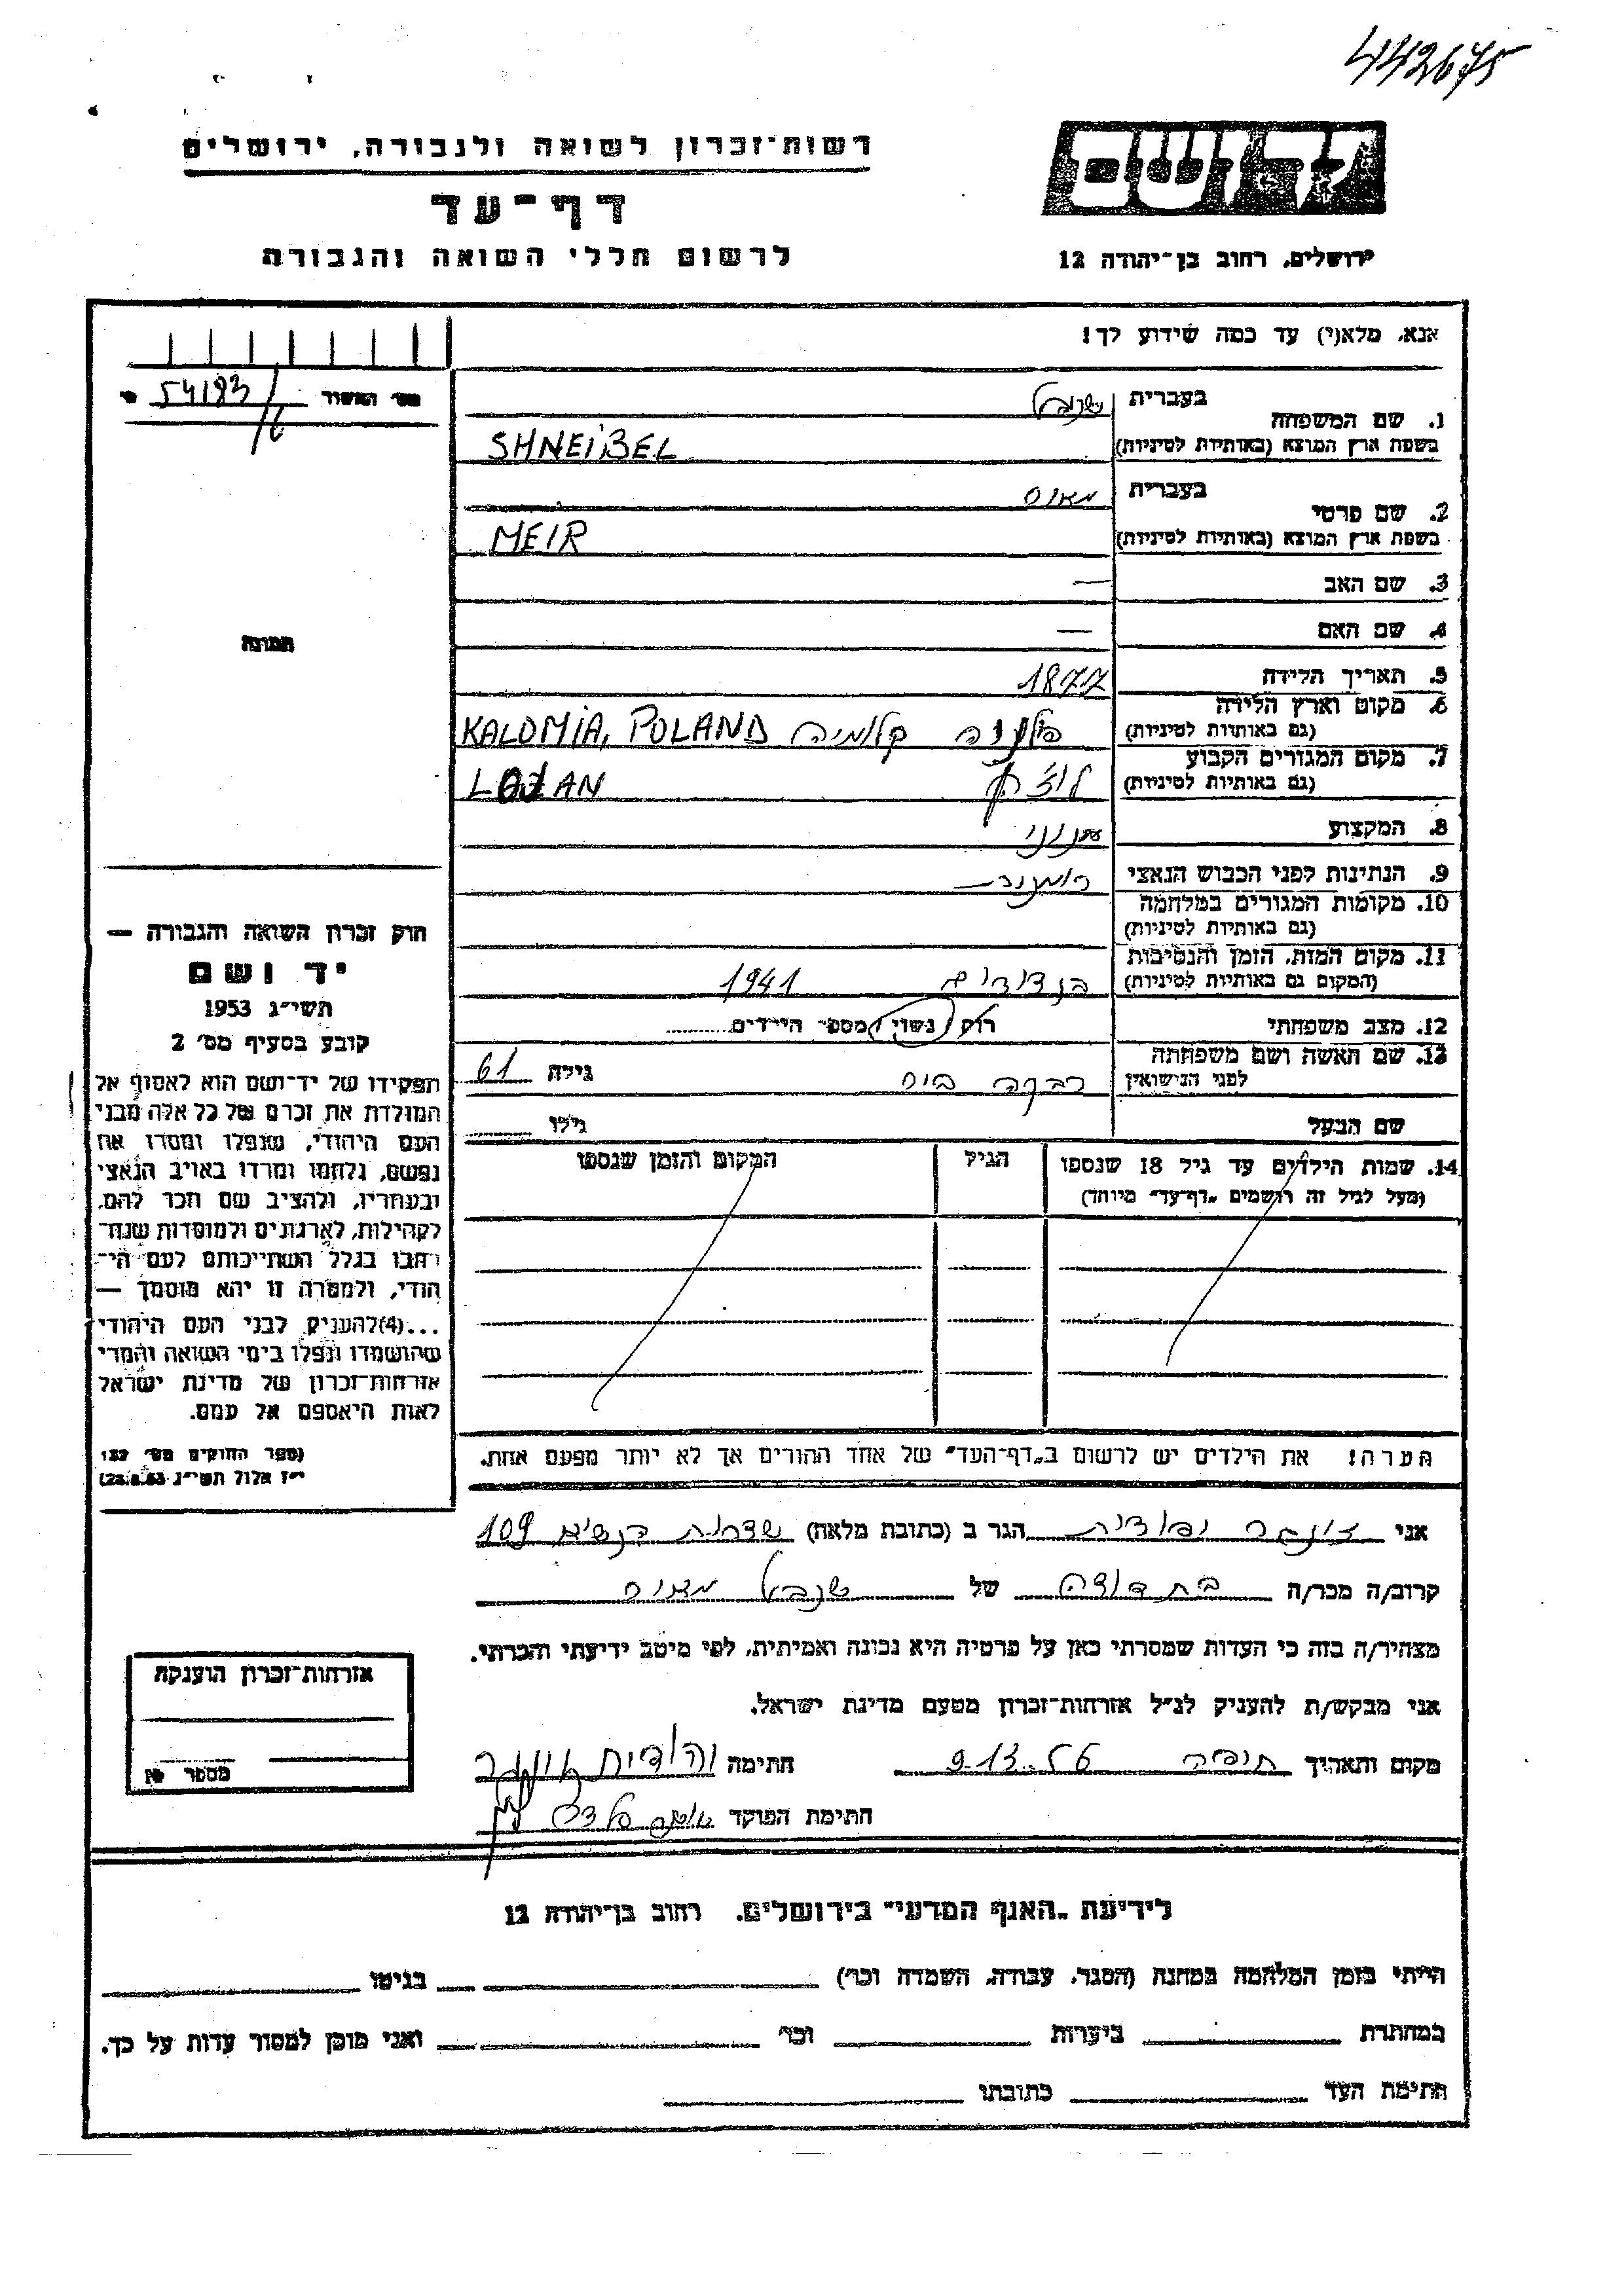 442675
רשות־זכרון לשואה ולגבורה, ירושלים
יד ושם
דף־עד
לרשום חללי השואה והגבורה
ירושלים, רחוב בן־יהודה 12
אנא, מלא(י) עד כמה שידוע לך!
מס׳ האשור 54193/6
1. שם המשפחה בעברית שנייבל
בשפת ארץ המוצא (באותיות לטיניות) SHNEIBEL
2. שם פרטי בעברית
בשפת ארץ המוצא (באותיות לטיניות) MEIR
3. שם האב —
4. שם האם —
תמונה
5. תאריך הלידה 1877
6. מקום וארץ הלידה (גם באותיות לטיניות) פולניה קלומיה KALOMIA, POLAND
7. מקום המגורים הקבוע (גם באותיות לטיניות) LOZAN
8. המקצוע
9. הנתינות לפני הכבוש הנאצי רומנית
10. מקומות המגורים במלחמה (גם באותיות לטיניות)
11. מקום המות, הזמן והנסיבות (המקום גם באותיות לטיניות) בנדודים 1941
12. מצב משפחתי רווק / נשוי / מספר הילדים
13. שם האשה ושם משפחתה לפני הנישואין רבקה גילה 61
שם הבעל גילו
14. שמות הילדים עד גיל 18 שנספו הגיל המקום והזמן שנספו
(מעל לגיל זה רושמים „דף־עד״ מיוחד)
הערה! את הילדים יש לרשום ב„דף־העד״ של אחד ההורים אך לא יותר מפעם אחת.
חוק זכרון השואה והגבורה —
יד ושם
תשי״ג 1953
קובע בסעיף מס׳ 2
תפקידו של יד־ושם הוא לאסוף אל
המולדת את זכרם של כל אלה מבני
העם היהודי, שנפלו ומסרו את
נפשם, נלחמו ומרדו באויב הנאצי
ובעוזריו, ולהציב שם וזכר להם,
לקהילות, לארגונים ולמוסדות שנח־
רבו בגלל השתייכותם לעם הי־
הודי, ולמטרה זו יהא מוסמך —
...(4)להעניק לבני העם היהודי
שהושמדו ונפלו בימי השואה והמרי
אזרחות־זכרון של מדינת ישראל
לאות היאספם אל עמם.
(ספר החוקים מס׳ 132
י״ז אלול תשי״ג 28.8.53)
אני יהודית הגר ב (כתובת מלאה) שדרות הנשיא 109
קרוב/ה מכר/ה בת דודה של
מצהיר/ה בזה כי העדות שמסרתי כאן על פרטיה היא נכונה ואמיתית, לפי מיטב ידיעתי והכרתי.
אני מבקש/ת להעניק לנ״ל אזרחות־זכרון מטעם מדינת ישראל.
מקום ותאריך חיפה חתימה יהודית
חתימת הפוקד
אזרחות־זכרון הוענקה
מספר
לידיעת „האגף המדעי״ בירושלים, רחוב בן־יהודה 12
הייתי בזמן המלחמה במחנה (הסגר, עבודה, השמדה וכר׳) בגיטו
במחתרת ביערות וכר׳ ואני מוכן למסור עדות על כך.
חתימת העד כתובתו